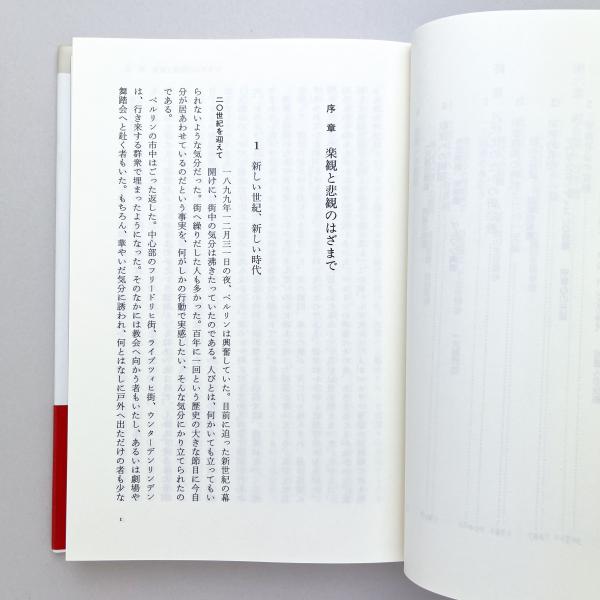 序章　楽観と悲観のはざまで
1　新しい世紀、新しい時代
二〇世紀を迎えて
一八九九年一二月三一日の夜、ベルリンは興奮していた。目前に迫った新世紀の幕
開けに、街中の気分は沸きたっていたのである。人びとは、何かいても立ってもい
られないような気分だった。街へ繰りだした人も多かった。百年に一回という歴史の大きな節目に今自
分が居あわせているのだという事実を、何がしかの行動で実感したい、そんな気分にかり立てられたの
である。
ベルリンの市中はごった返した。中心部のフリードリヒ街、ライプツィヒ街、ウンターデンリンデン
は、行き来する群衆で埋まったようになった。そのなかには教会へ向かう者もいたし、あるいは劇場や
舞踏会へと赴く者もいた。もちろん、華やいだ気分に誘われ、何とはなしに戸外へ出ただけの者も少な
1